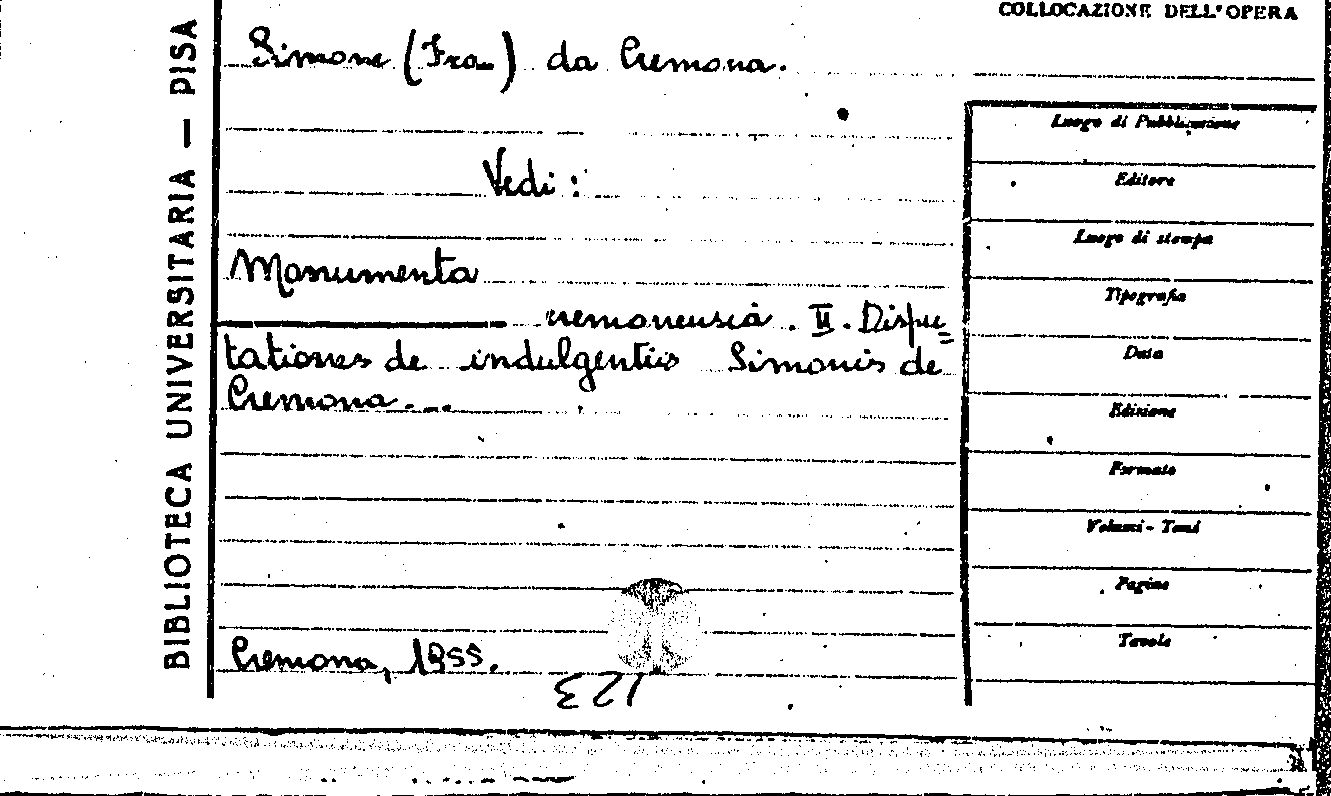 COLLOCAZIONE DELL'OPERA
BIBLIOTECA UNIVERSITARIA — PISA
Simone (Fra..) da Cremona.
Vedi:
Monumenta
cremonensia. II. Dispu=
tationes de indulgentiis Simonis de
Cremona...
Cremona, 1955.
123
Luogo di Pubblicazione
Editore
Luogo di stampa
Tipografia
Data
Edizione
Formato
Volumi - Tomi
Pagine
Tavole